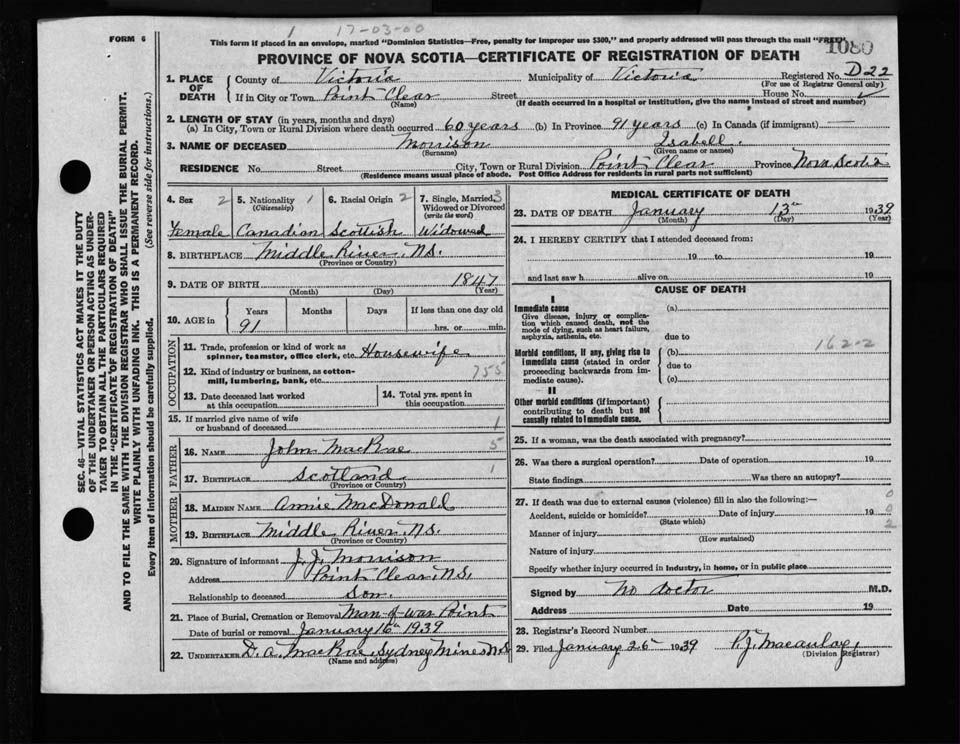 FORM 6
1 17-03-00
This form if placed in an envelope, marked "Dominion Statistics—Free, penalty for improper use $300," and properly addressed will pass through the mail "FREE"
1080
PROVINCE OF NOVA SCOTIA—CERTIFICATE OF REGISTRATION OF DEATH
1. PLACE OF DEATH County of Victoria Municipality of Victoria Registered No. D22
(For use of Registrar General only)
If in City or Town Point Clear Street House No.
(Name) (If death occurred in a hospital or institution, give the name instead of street and number)
2. LENGTH OF STAY (in years, months and days)
(a) In City, Town or Rural Division where death occurred 60 years (b) In Province 91 years (c) In Canada (if immigrant) —
3. NAME OF DECEASED Morrison Isabell.
(Surname) (Given name or names)
RESIDENCE No. Street City, Town or Rural Division Point Clear Province Nova Scotia
(Residence means usual place of abode. Post Office Address for residents in rural parts not sufficient)
4. Sex 2 5. Nationality 1 6. Racial Origin 2 7. Single, Married, 3
(Citizenship) Widowed or Divorced
(write the word)
Female Canadian Scottish Widowed
8. BIRTHPLACE Middle River, N.S.
(Province or Country)
9. DATE OF BIRTH 1847
(Month) (Day) (Year)
10. AGE in Years Months Days If less than one day old
91 hrs. or min.
OCCUPATION
11. Trade, profession or kind of work as
spinner, teamster, office clerk, etc. Housewife
12. Kind of industry or business, as cotton- 755
mill, lumbering, bank, etc.
13. Date deceased last worked
at this occupation
14. Total yrs. spent in
this occupation
15. If married give name of wife
or husband of deceased 1
FATHER
16. NAME John MacRae 5
17. BIRTHPLACE Scotland 1
(Province or Country)
MOTHER
18. MAIDEN NAME Annie MacDonald
19. BIRTHPLACE Middle River, N.S.
(Province or Country)
20. Signature of informant J. J. Morrison
Address Point Clear, N.S.
Relationship to deceased son.
21. Place of Burial, Cremation or Removal Man-of-war Point
Date of burial or removal January 16th 1939
22. UNDERTAKER D. A. MacRae, Sydney Mines N.S
(Name and address)
MEDICAL CERTIFICATE OF DEATH
23. DATE OF DEATH January 13th 1939
(Month) (Day) (Year)
24. I HEREBY CERTIFY that I attended deceased from:
19 to 19
and last saw h alive on 19
CAUSE OF DEATH
I
Immediate cause (a)
Give disease, injury or complica-
tion which caused death, not the
mode of dying, such as heart failure,
asphyxia, asthenia, etc.
due to
162-2
Morbid conditions, if any, giving rise to (b)
immediate cause (stated in order due to
proceeding backwards from im-
mediate cause). (c)
II
Other morbid conditions (if important)
contributing to death but not
causally related to immediate cause.
25. If a woman, was the death associated with pregnancy?
26. Was there a surgical operation? Date of operation 19
State findings Was there an autopsy?
27. If death was due to external causes (violence) fill in also the following:— 0
Accident, suicide or homicide? Date of injury 19 0
(State which) 2
Manner of injury
(How sustained)
Nature of injury
Specify whether injury occurred in industry, in home, or in public place
Signed by No doctor M.D.
Address Date 19
28. Registrar's Record Number
29. Filed January 25 1939 P. J. Macaulay,
(Division Registrar)
SEC. 46—VITAL STATISTICS ACT MAKES IT THE DUTY
OF THE UNDERTAKER OR PERSON ACTING AS UNDER-
TAKER TO OBTAIN ALL THE PARTICULARS REQUIRED
IN THE "CERTIFICATE OF REGISTRATION OF DEATH"
AND TO FILE THE SAME WITH THE DIVISION REGISTRAR WHO SHALL ISSUE THE BURIAL PERMIT.
WRITE PLAINLY WITH UNFADING INK. THIS IS A PERMANENT RECORD.
Every item of information should be carefully supplied. (See reverse side for instructions.)